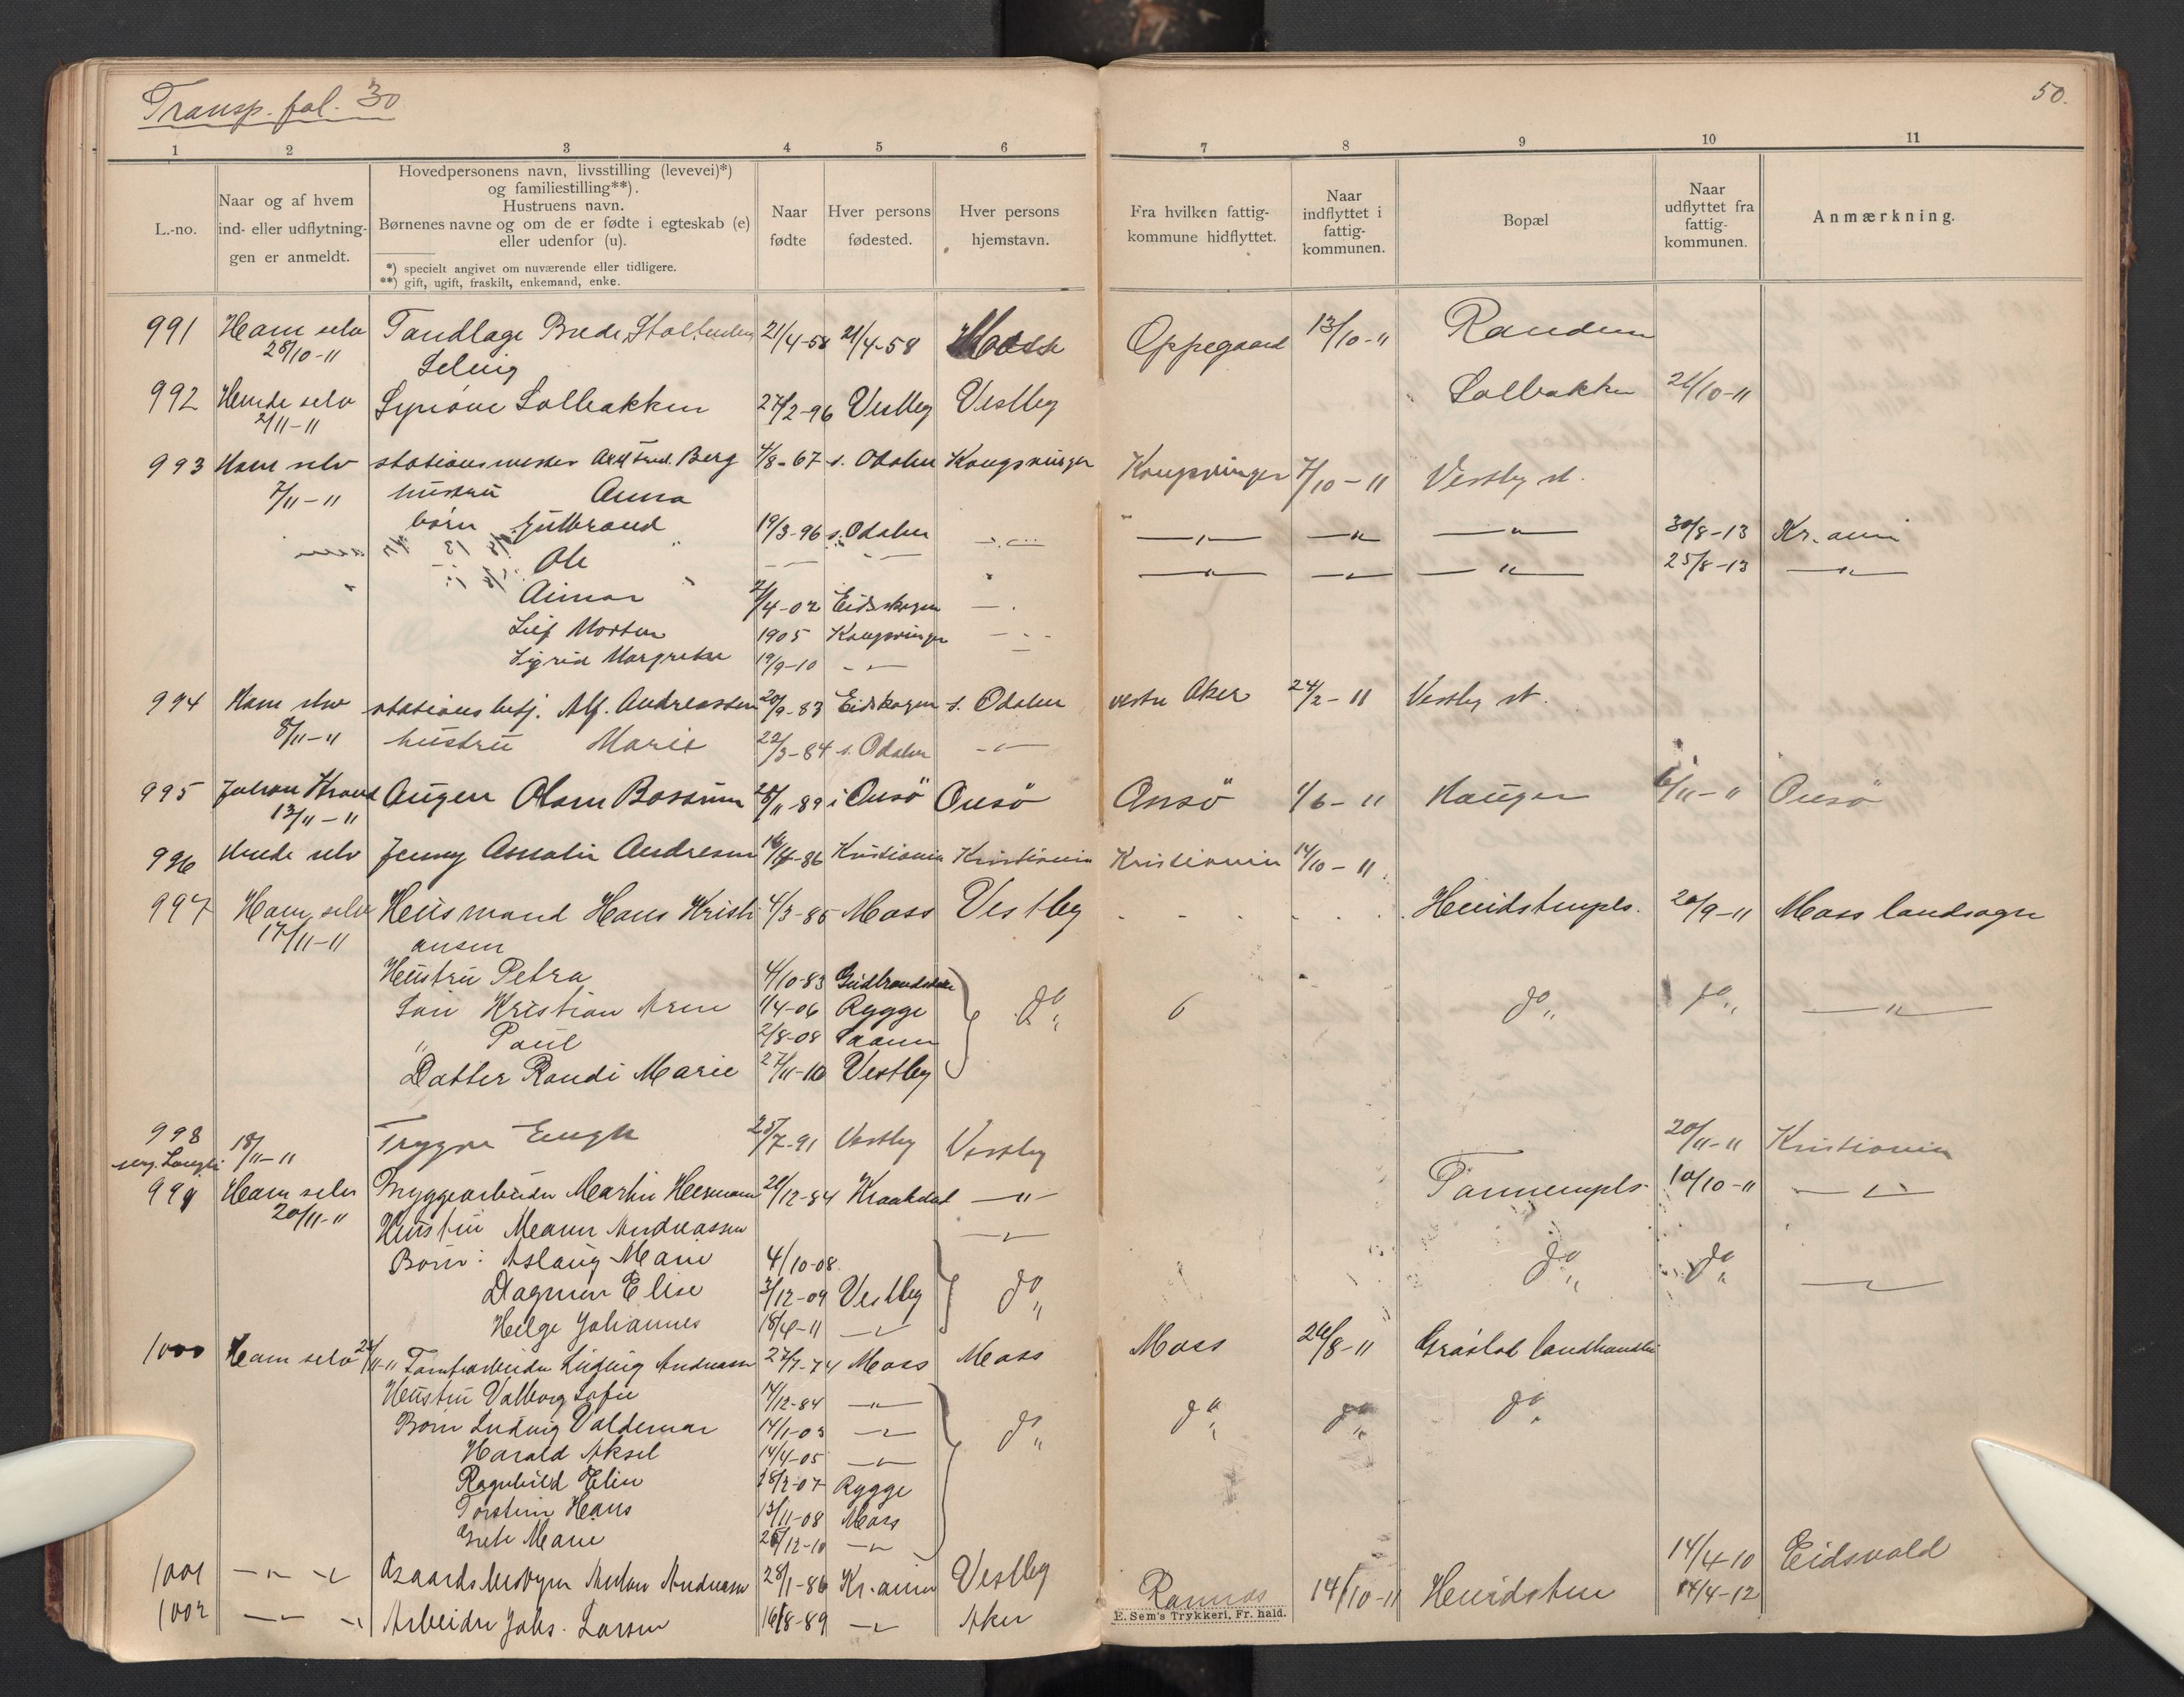 Transp. fol. 30
50.
1 2 3 4 5 6 7 8 9 10 11
L.-no.
Naar og af hvem
ind- eller udflytnin-
gen er anmeldt.
Hovedpersonens navn, livsstilling (levevei)*)
og familiestilling**).
Hustruens navn.
Børnenes navne og om de er fødte i egteskab (e)
eller udenfor (u).
*) specielt angivet om nuværende eller tidligere.
**) gift, ugift, fraskilt, enkemand, enke.
Naar
fødte
Hver persons
fødested.
Hver persons
hjemstavn.
Fra hvilken fattig-
kommune hidflyttet.
Naar
indflyttet i
fattig-
kommunen.
Bopæl
Naar
udflyttet fra
fattig-
kommunen.
Anmærkning.
991 Ham selv Tandlæge Brede 21/4-58 21/4-58 Moss Oppegaard 13/10-11 Randem
28/10-11
992 Hende selv Synöve Solbakken 27/2-96 Vestby Vestby Solbakken 21/10-11
2/11-11
993 Ham selv stationsmester Berg 4/8-67 s. Odalen Kongsvinger Kongsvinger 7/10-11 Vestby st.
7/11-11 hustru Anna
börn Gulbrand 19/3-96 s. Odalen — " — — " — — " — 30/8-13 Kr.ania
Ole — — — " — — " — — " — 25/8-13 — " —
Einar 2/4-02 Eidskogen
Leif Morten 1905 Kongsvinger
Sigrid Margrethe 19/9-10 — " —
994 Ham selv stationsbetj. Alf. Andreassen 20/9-83 Eidskogen s. Odalen vestre Aker 24/2-11 Vestby st.
8/11-11 hustru Marie 22/3-84 s. Odalen — " —
995 Johan Strand Olsen 28/11-89 i Onsö Onsö Onsö 1/6-11 Hauger 6/11-11 Onsö
13/11-11
996 Hende selv Jenny Amalie Andresen 16/4-86 Kristiania Kristiania Kristiania 14/10-11
997 Ham selv Husmand Hans Kristi 4/3-85 Moss Vestby 20/9-11 Moss landsogn
17/11-11 ansen
Hustru Petra 4/10-83 Gudbrandsdalen
Sön Kristian Arne 1/4-06 Rygge do " do " do " — " —
" Paul 2/8-08 Saaner
Datter Randi Marie 27/11-10 Vestby
998 18/11-11 Trygve Engh 25/7-91 Vestby Vestby 20/11-11 Kristiania
999 Ham selv Bryggearbeider Martin Hermann 21/12-84 Kraakstad — " — 10/10-11 — " —
20/11-11 Hustru Andreassen — " —
Börn: Aslaug Marie 4/10-08
Dagmar Elise 3/12-09 Vestby do " do " do " — " —
Helge Johannes 18/4-11 — " —
1000 Ham selv Ludvig Andreassen 27/7-74 Moss Moss Moss 26/8-11 landhandleri
Hustru Valborg Sofie 14/12-84 — " —
Börn Ludvig Valdemar 14/1-03 — " — do " do " do " do "
Harald Aksel 14/4-05 — " —
Ragnhild Elin 18/2-07 Rygge
Torstein Hans 13/11-08 Moss
Grete Marie 25/12-10 — " —
1001 — " — Gaardsbestyrer Anton Andreasen 28/1-86 Kr.ania Vestby 14/4-10 Eidsvold
1002 — " — Arbeider Johs. Larsen 16/8-89 — " — Aker Ramnes 14/10-11 14/4-12
E. Sem's Trykkeri, Fr. hald.